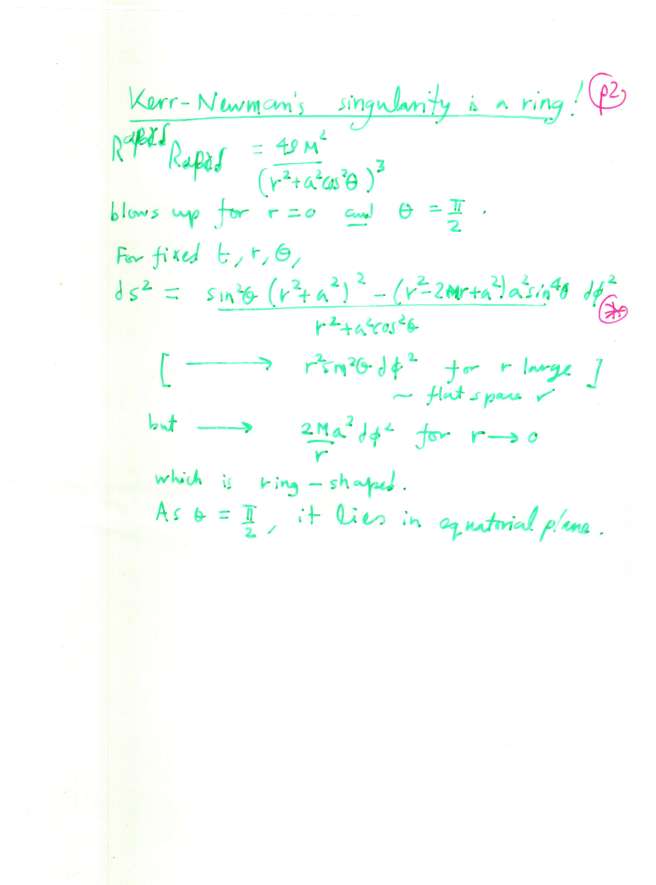 Kerr-Newman's singularity is a ring! p2
R^{αβγδ} R_{αβγδ} = 48M² / (r²+a²cos²θ)³
blows up for r=0 and θ = π/2.
For fixed t, r, θ,
ds² = sin²θ (r²+a²)² - (r²-2Mr+a²)a²sin⁴θ / r²+a²cos²θ dφ²
[ ⟶ r²sin²θ dφ² for r large ]
~ flat space ✓
but ⟶ 2Ma²/r dφ² for r→0
which is ring-shaped.
As θ = π/2, it lies in equatorial plane.